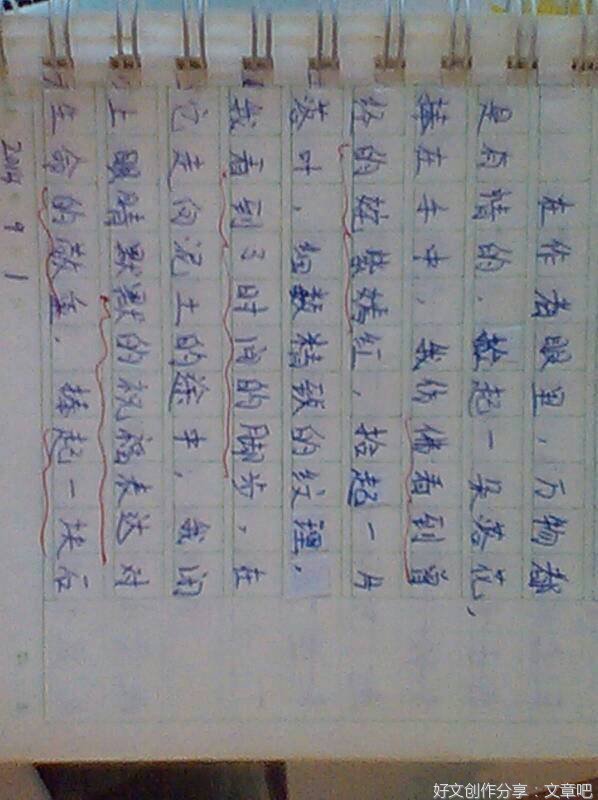 在作者眼里，万物都
是有情的，捡起一朵落花，
捧在手中，我仿佛看到曾
经的姹紫嫣红，拾起一片
落叶，细数精致的纹理，
我看到了时间的脚步，在
它走向泥土的途中，我闭
上眼睛默默的祝福表达对
生命的敬重，捧起一块石
2014 9 1
好文创作分享：文章吧